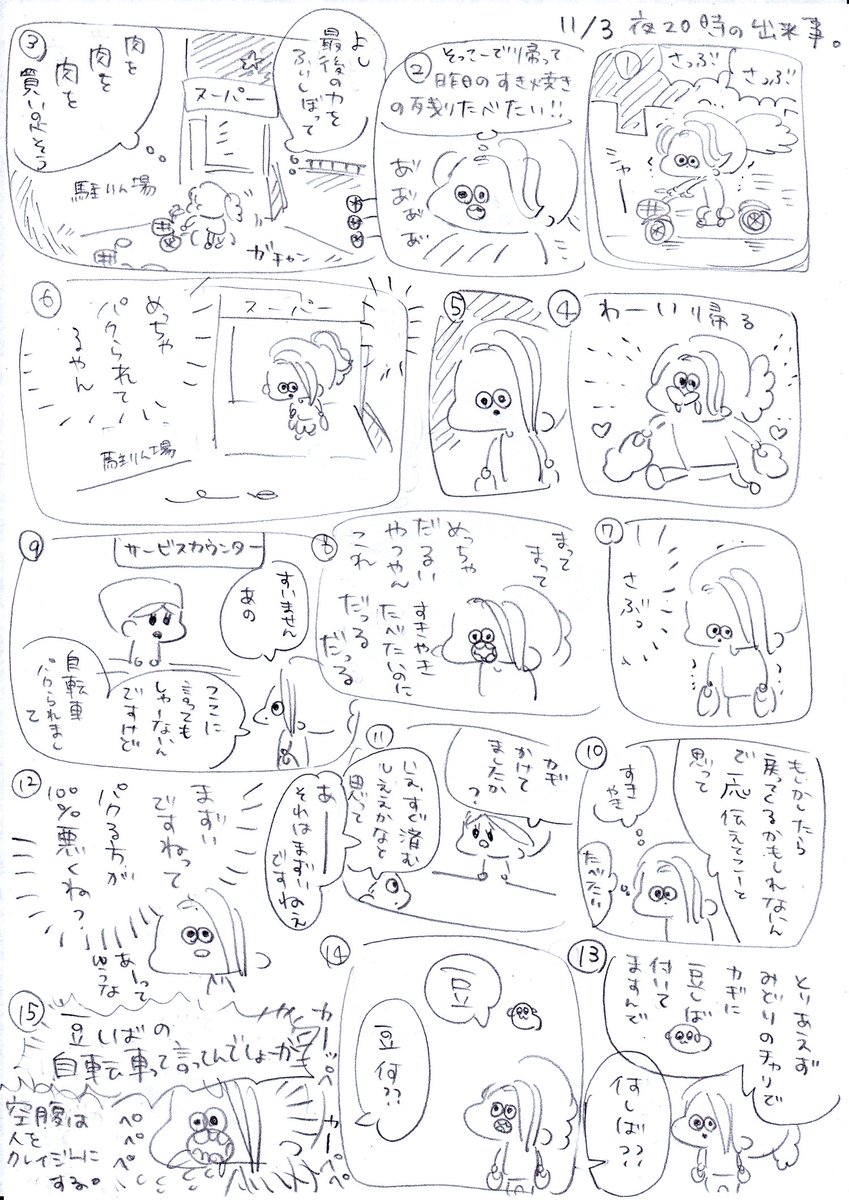 11/3 夜20時の出来事。
①
さっぶ
さっぶ
シャー
②
そっこーで帰って
昨日のすき焼き
の残りたべたい!!
あ゛
あ゛
あ゛
あ゛
③
よし
最後の力を
ふりしぼって
スーパー
肉を
肉を
肉を
買いのたそう
駐りん場
ガチャン
④
わーい帰る
⑤
⑥
スーパー
めっちゃ
パクられて
るやん
駐りん場
⑦
さぶっ
⑧
まって
まって
めっちゃ
だるい
やつやん
これ
すきやき
たべたいのに
だっる
だっる
⑨
サービスカウンター
すいません
あの
自転車
パクられまし
て
ここに
言っても
しゃーないん
ですけど
⑩
もしかしたら
戻ってるかもしれないん
で一応伝えてこーと
思って
すき
やき
たべたい
⑪
カギ
かけて
ましたか
?
いえ、すぐ済む
しええかなと
思って
あー
それはまずい
ですねえ
⑫
まずい
ですねって
パクる方が
100%悪くね?
あーって
ゆうな
⑬
とりあえず
みどりのチャリで
カギに
豆しば
付いて
ますんで
何しば??
⑭
豆
豆何??
⑮
豆しばの
自転車って言ってんでしょーが
カーッペ
カーッペ
ペ
ペ
ペ
ペ
空腹は
人を
クレイジーに
する。